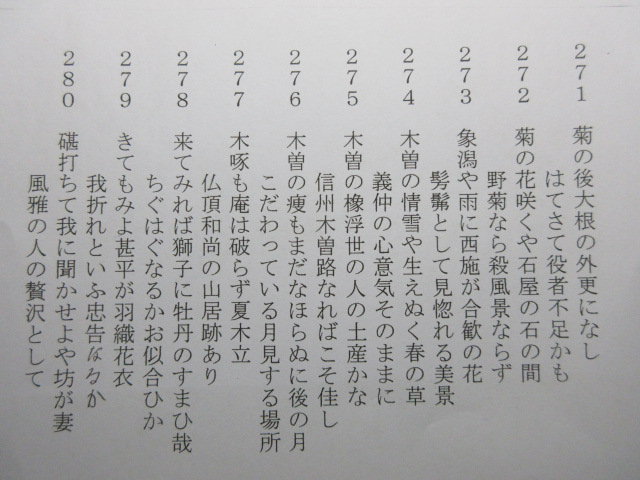 271 菊の後大根の外更になし
はてさて役者不足かも
272 菊の花咲くや石屋の石の間
野菊なら殺風景ならず
273 象潟や雨に西施が合歓の花
髣髴として見惚れる美景
274 木曽の情雪や生えぬく春の草
義仲の心意気そのままに
275 木曽の橡浮世の人の土産かな
信州木曽路なればこそ佳し
276 木曽の痩もまだなほらぬに後の月
こだわっている月見する場所
277 木啄も庵は破らず夏木立
仏頂和尚の山居跡あり
278 来てみれば獅子に牡丹のすまひ哉
ちぐはぐなるかお似合ひか
279 きてもみよ甚平が羽織花衣
我折れといふ忠告なるか
280 碪打ちて我に聞かせよや坊が妻
風雅の人の贅沢として